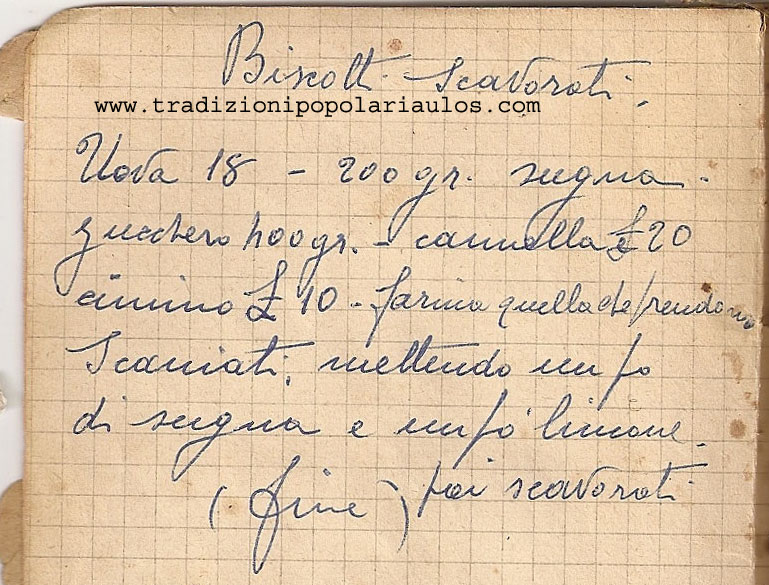 Biscotti Scavorati.
www.tradizionipopolariaulos.com
Uova 18 - 200 gr. sugna -
zucchero 400 gr. - cannella £ 20
cimino £ 10 - farina quella che prendono
Scaniati, mettendo un po
di sugna e un pò limone.
(fine) poi scavorati